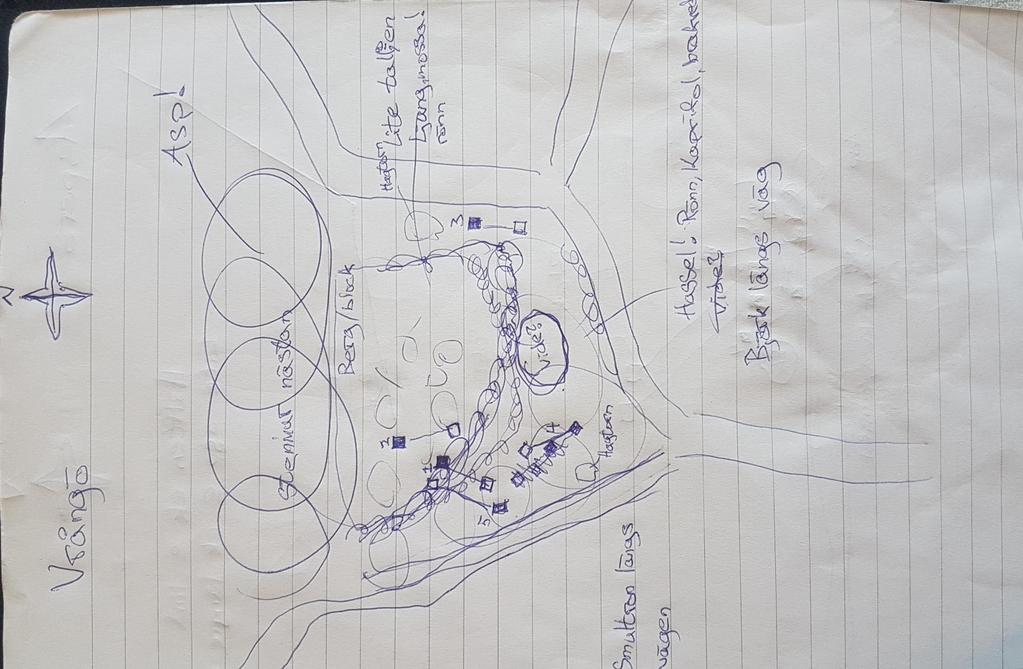 Vrångö
N
Asp!
Stenmur nästan
Berg/block
Hagtorn
Lite tall, en
Ljung, mossa!
rönn
3
2
1
5
4
Vide?
Hagtorn
Hassel! Rönn, Kaprifol,
Vide?
Björk längs väg
Smultron längs
vägen